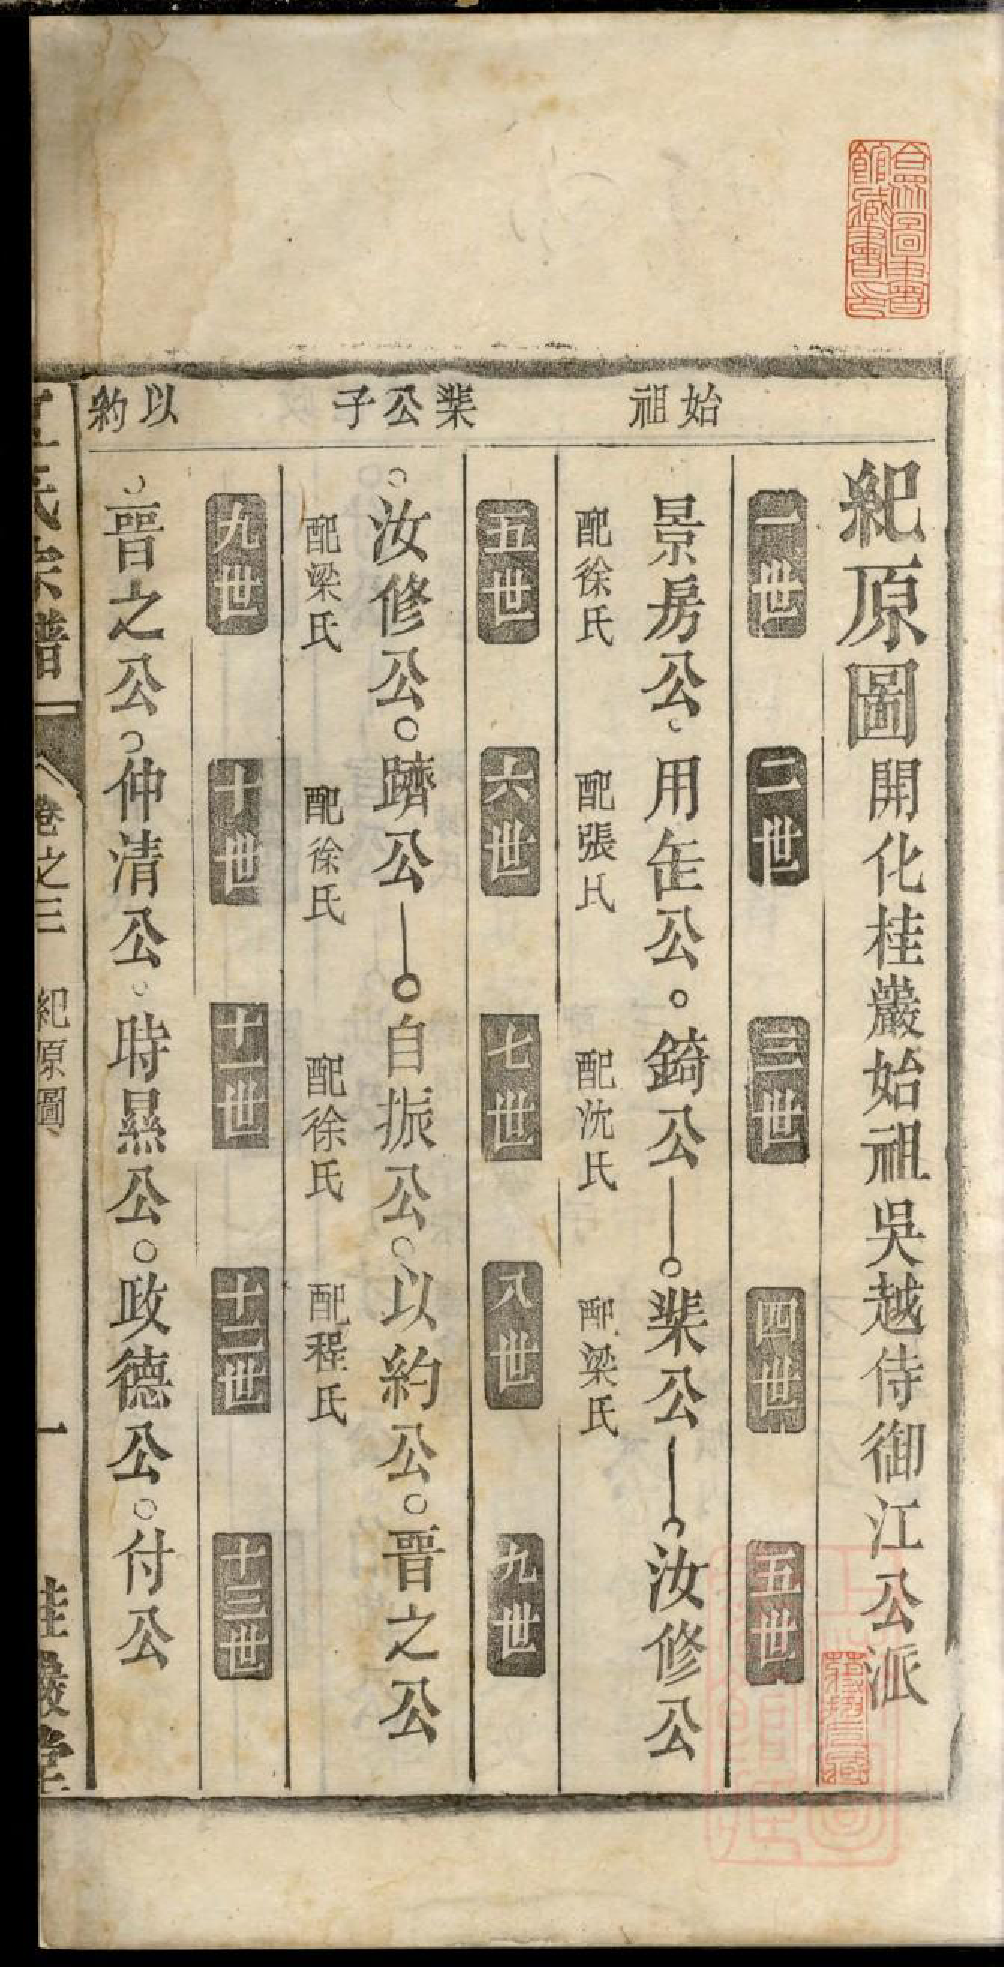 始祖
棐公子
以約
紀原圖開化桂巖始祖吳越侍御江公派
一世 二世 三世 四世 五世
景房公 用缶公 錡公 棐公 汝修公
配徐氏 配張氏 配沈氏 配梁氏
五世 六世 七世 八世 九世
汝修公 躋公 自振公 以約公 晋之公
配梁氏 配徐氏 配徐氏 配程氏
九世 十世 十一世 十二世 十三世
晋之公 仲清公 時㬎公 政德公 付公
江氏宗譜 卷之三 紀原圖 一 桂巖堂